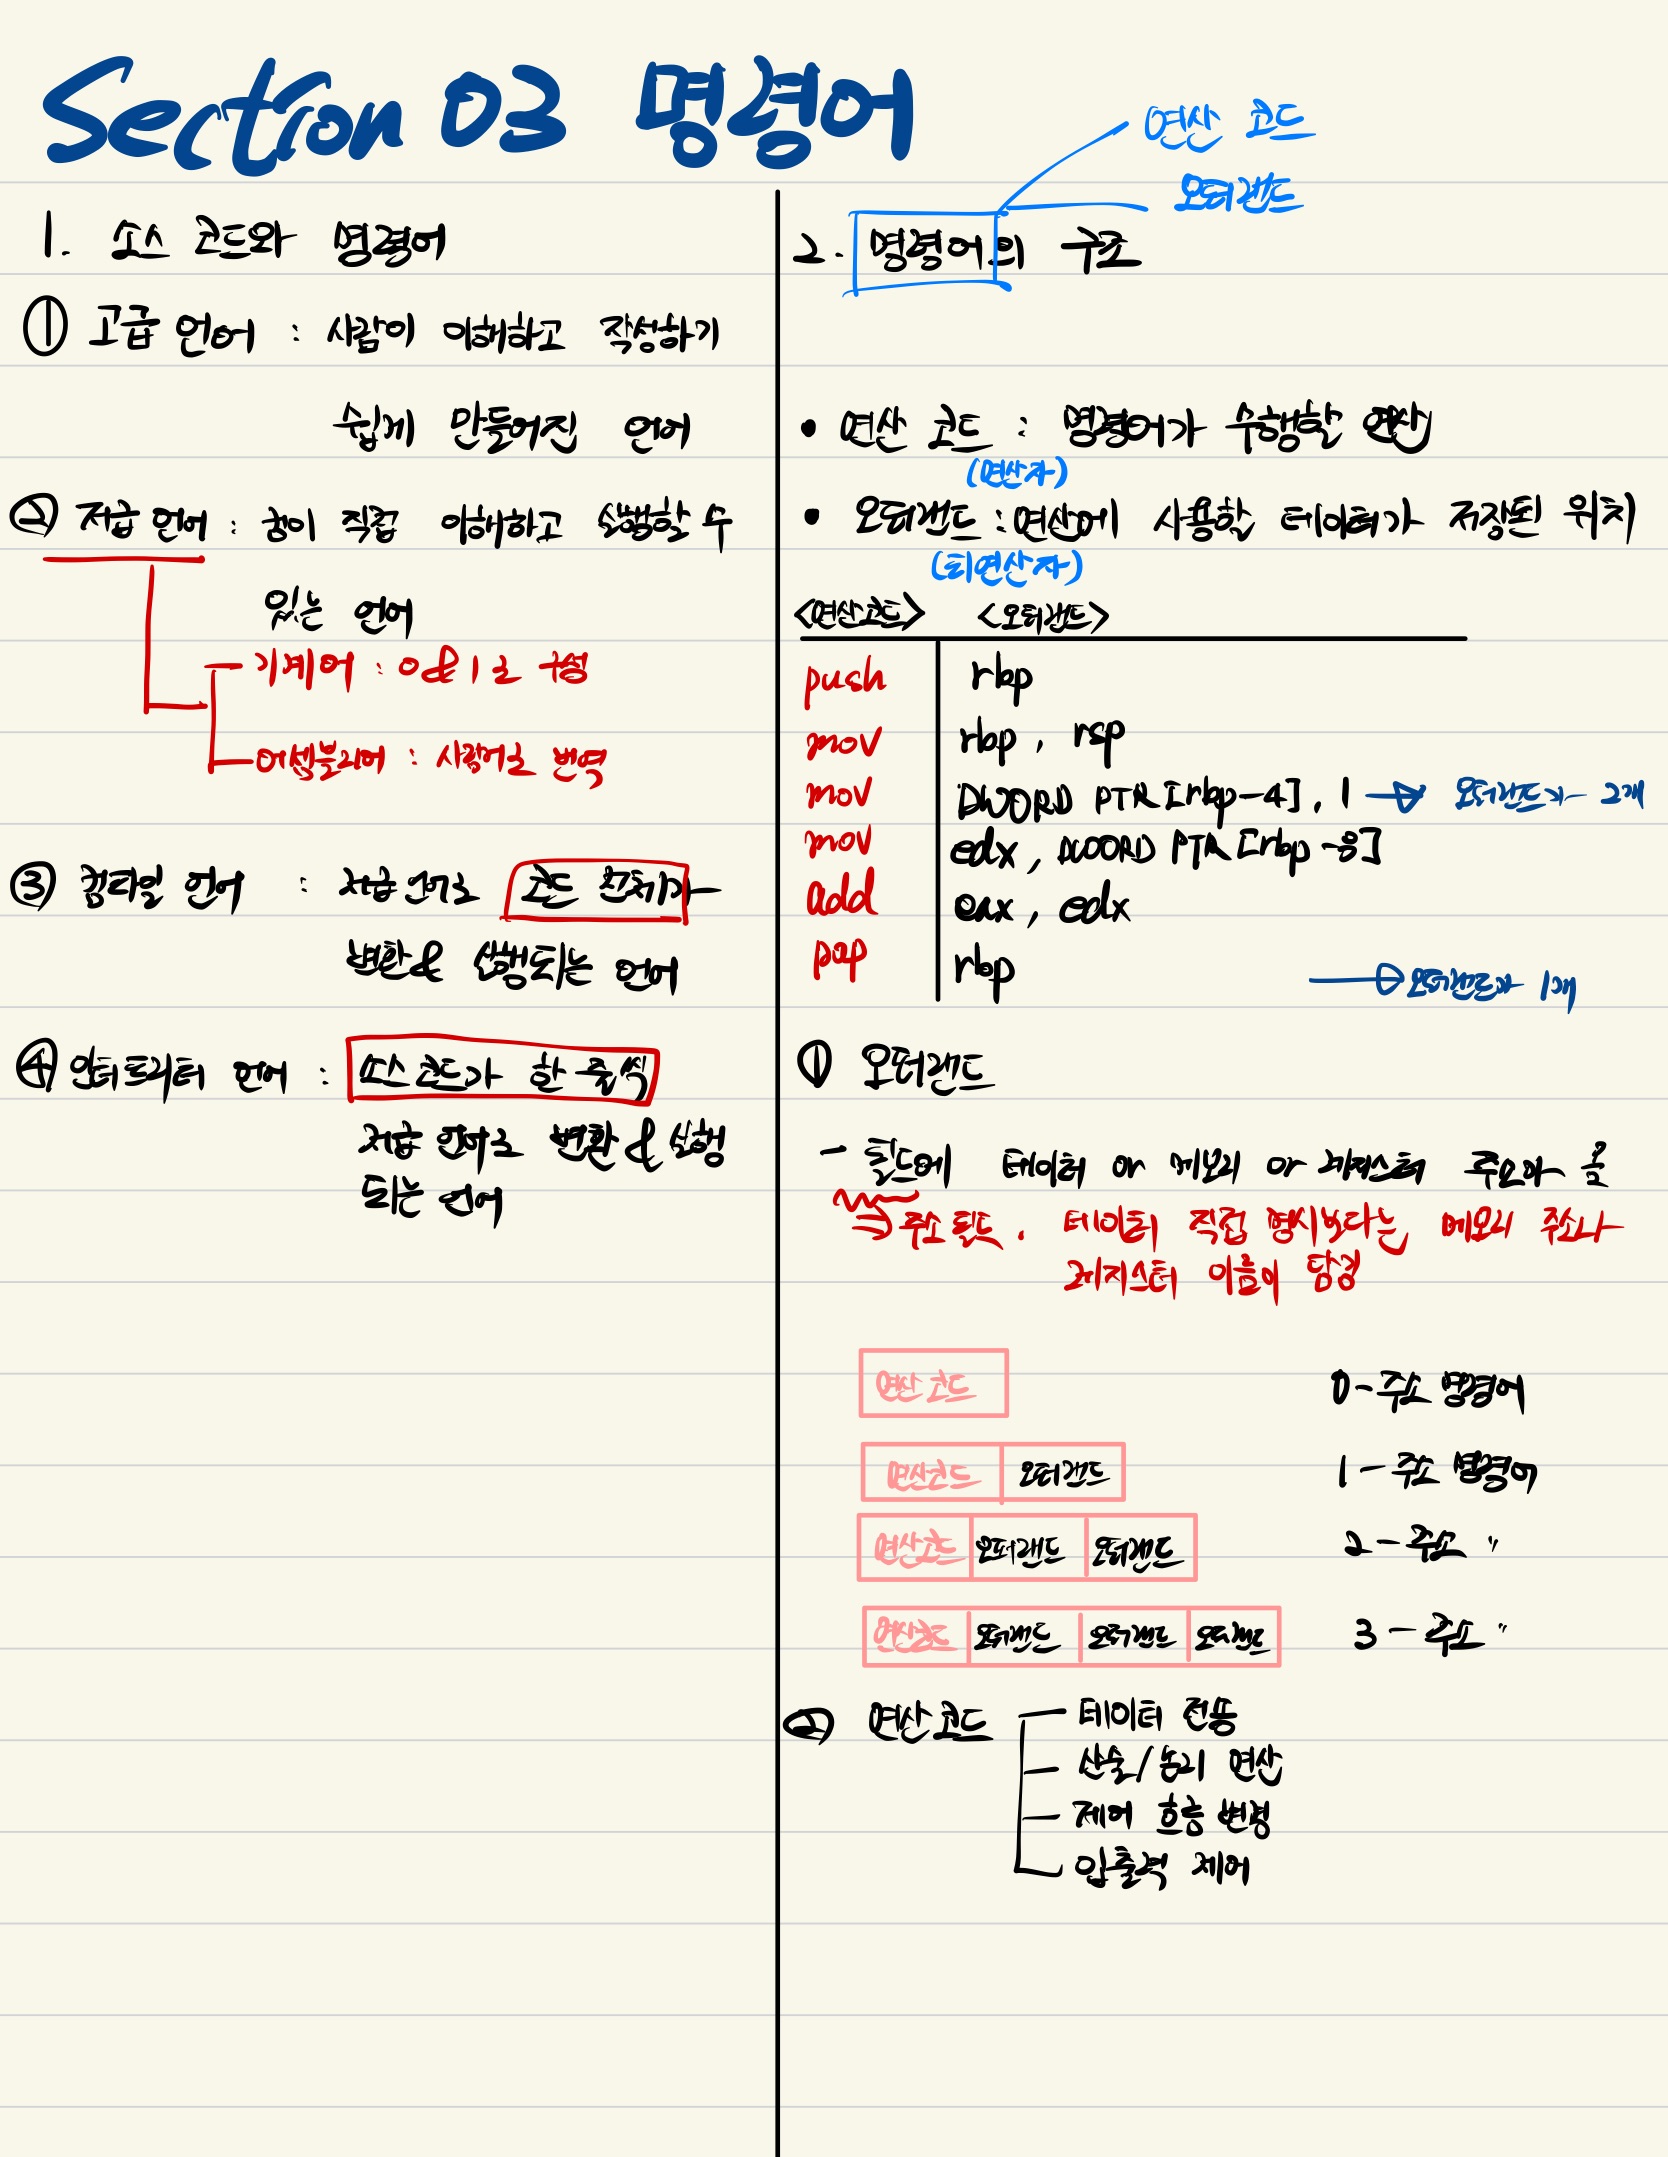 Section 03 명령어
1. 소스 코드와 명령어
① 고급 언어 : 사람이 이해하고 작성하기
쉽게 만들어진 언어
② 저급 언어 : 컴이 직접 이해하고 실행할 수
있는 언어
기계어 : 0 & 1로 구성
어셈블리어 : 사람어로 번역
③ 컴파일 언어 : 저급 언어로 코드 전체가
변환 & 실행되는 언어
④ 인터프리터 언어 : 소스 코드가 한 줄씩
저급 언어로 변환 & 실행
되는 언어
연산 코드
오퍼랜드
2. 명령어의 구조
• 연산 코드 : 명령어가 수행할 연산
(연산자)
• 오퍼랜드 : 연산에 사용할 데이터가 저장된 위치
(피연산자)
<연산코드> <오퍼랜드>
push rbp
mov rbp, rsp
mov DWORD PTR [rbp-4], 1 → 오퍼랜드가 2개
mov edx, DWORD PTR [rbp-8]
add eax, edx
pop rbp → 오퍼랜드가 1개
① 오퍼랜드
- 필드에 데이터 or 메모리 or 레지스터 주소가 옴
⇒ 주소 필드. 데이터 직접 명시보다는 메모리 주소나
레지스터 이름이 담김
연산 코드 0-주소 명령어
연산코드 오퍼랜드 1-주소 명령어
연산코드 오퍼랜드 오퍼랜드 2-주소 "
연산코드 오퍼랜드 오퍼랜드 오퍼랜드 3-주소 "
② 연산코드
데이터 전송
산술/논리 연산
제어 흐름 변경
입출력 제어